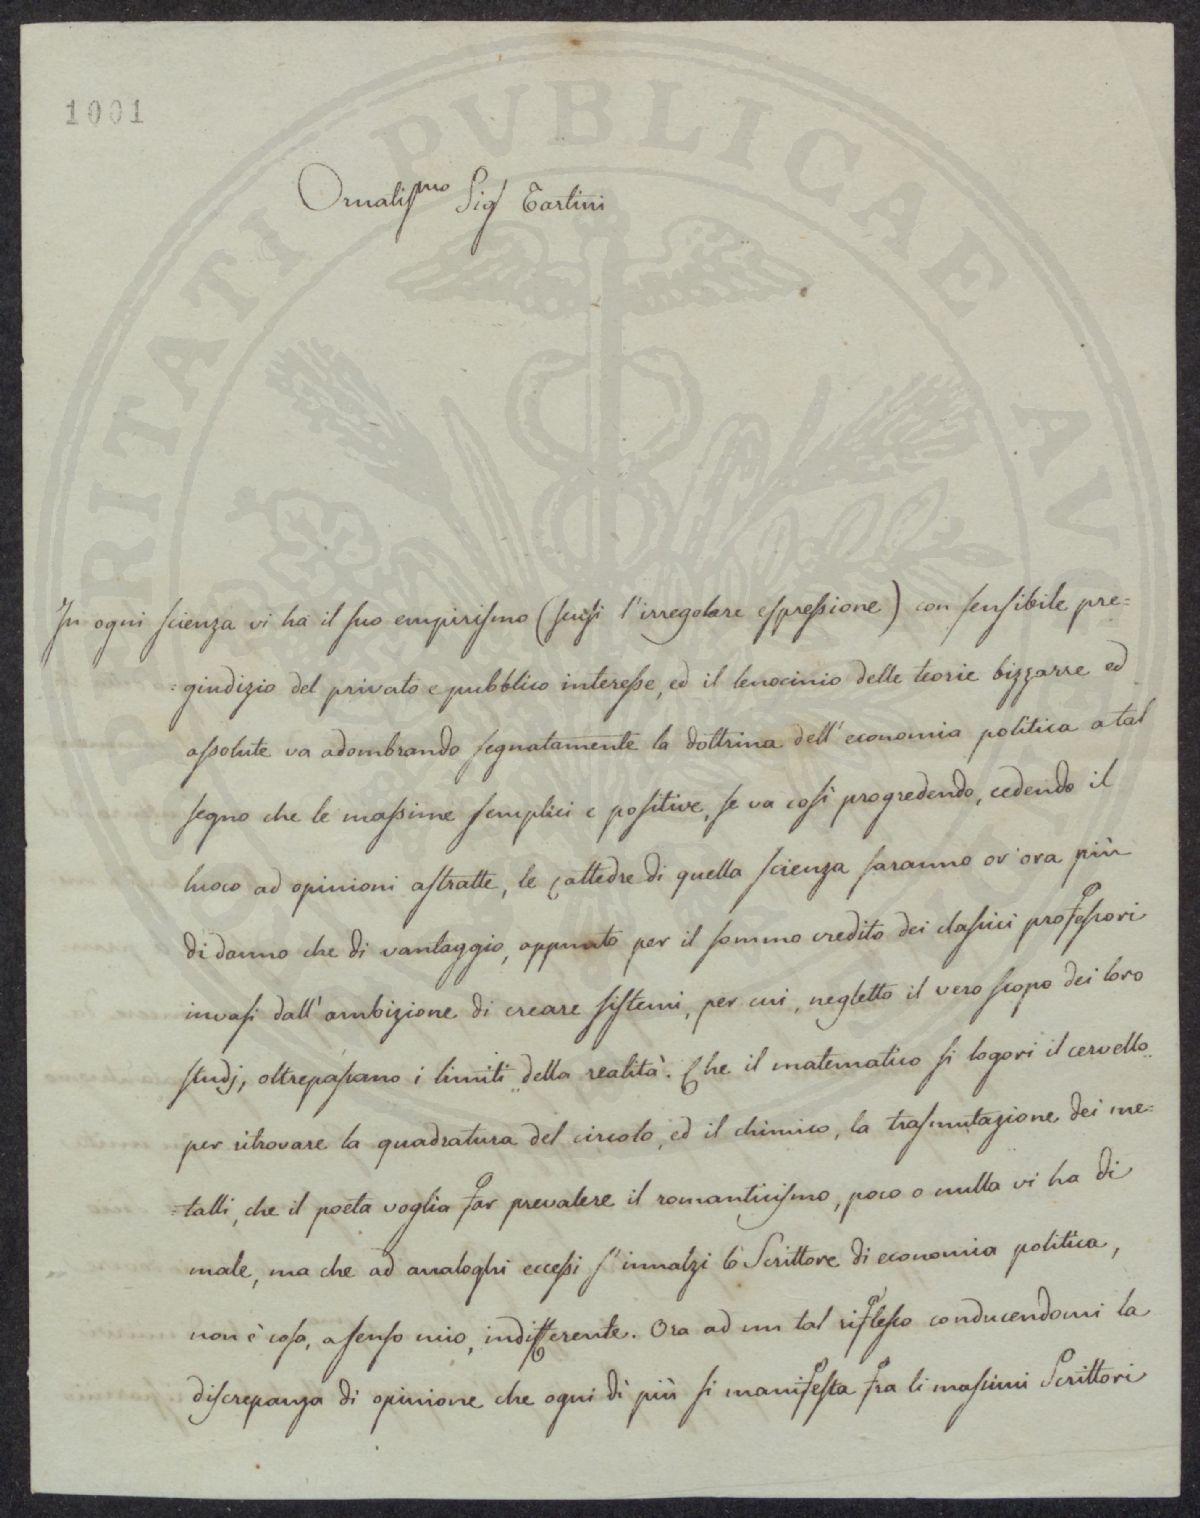 1001
Ornatissmo Sigr Tartini
In ogni scienza vi ha il suo empirismo (scusi l'irregolare espressione) con sensibile pre=
=giudizio del privato e pubblico interesse, ed il lenocinio delle teorie bizzarre ed
assolute va adombrando segnatamente la dottrina dell'economia politica a tal
segno che le massime semplici e positive, se va così progredendo, cedendo il
luoco ad opinioni astratte, le Cattedre di quella scienza saranno or'ora più
di danno che di vantaggio, appunto per il sommo credito dei classici professori
invasi dall'ambizione di creare sistemi, per cui, negletto il vero scopo dei loro
studj, oltrepassano i limiti della realità. Che il matematico si logori il cervello
per ritrovare la quadratura del circolo, ed il chimico, la trasmutazione dei me=
=talli, che il poeta voglia far prevalere il romanticismo, poco o nulla vi ha di
male, ma che ad analoghi eccessi s'innalzi lo Scrittore di economia politica,
non è cosa, a senso mio, indifferente. Ora ad un tal riflesso conducendomi la
discrepanza di opinione che ogni dì più si manifesta fra li massimi Scrittori
PRITATI PVBLICAE AV